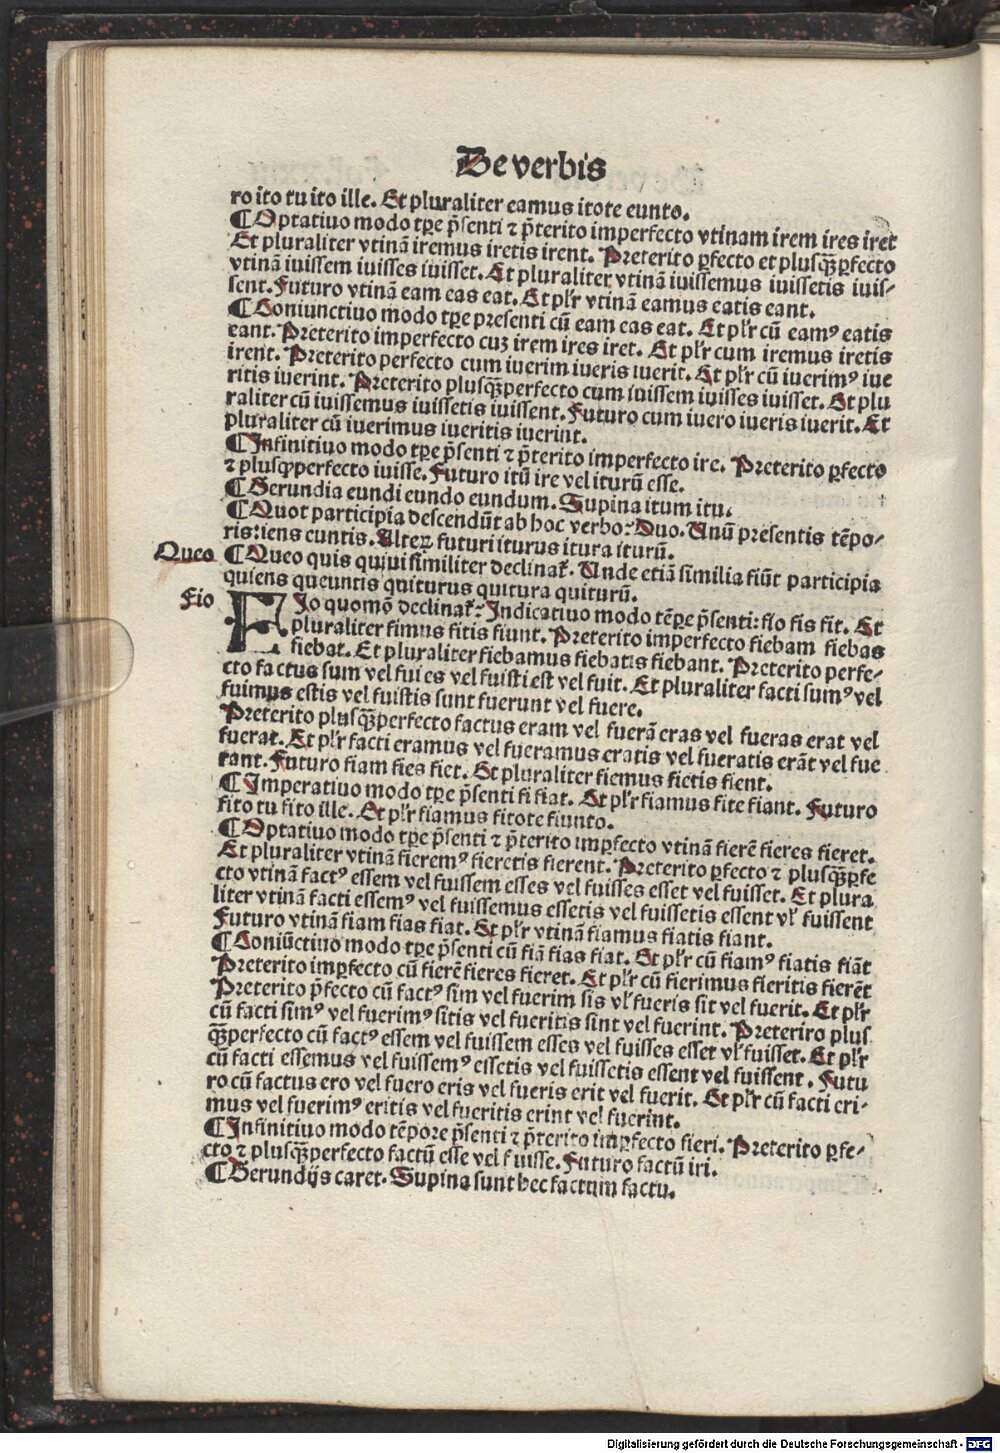 De verbis
ro ito tu ito ille. Et pluraliter eamus itote eunto.
¶ Optatiuo modo tꝑe p̃senti ⁊ p̃terito imperfecto vtinam irem ires iret
Et pluraliter vtinã iremus iretis irent. Preterito ꝑfecto et plusq̃ꝑfecto
vtinã iuissem iuisses iuisset. Et pluraliter vtinã iuissemus iuissetis iuis-
sent. Futuro vtinã eam eas eat. Et pl'r vtinã eamus eatis eant.
¶ Coniunctiuo modo tꝑe presenti cũ eam eas eat. Et pl'r cũ eamꝰ eatis
eant. Preterito imperfecto cuꝫ irem ires iret. Et pl'r cum iremus iretis
irent. Preterito perfecto cum iuerim iueris iuerit. Et pl'r cũ iuerimꝰ iue
ritis iuerint. Preterito plusq̃perfecto cum iuissem iuisses iuisset. Et plu
raliter cũ iuissemus iuissetis iuissent. Futuro cum iuero iueris iuerit. Et
pluraliter cũ iuerimus iueritis iuerint.
¶ Infinitiuo modo tꝑe p̃senti ⁊ p̃terito imperfecto ire. Preterito ꝑfecto
⁊ plusqꝑperfecto iuisse. Futuro itũ ire vel iturũ esse.
¶ Gerundia eundi eundo eundum. Supina itum itu.
¶ Quot participia descendũt ab hoc verbo? Duo. Unũ presentis tẽpo-
ris: iens euntis. Alteꝝ futuri iturus itura iturũ.
Queo ¶ Queo quis quiui similiter declinat᷑. Unde etiã similia fiũt participia
quiens queuntis quiturus quitura quiturũ.
Fio FIo quomõ declinat᷑? Indicatiuo modo tẽꝑe p̃senti: fio fis fit. Et
pluraliter fimus fitis fiunt. Preterito imperfecto fiebam fiebas
fiebat. Et pluraliter fiebamus fiebatis fiebant. Preterito perfe-
cto factus sum vel fui es vel fuisti est vel fuit. Et pluraliter facti sumꝰ vel
fuimus estis vel fuistis sunt fuerunt vel fuere.
Preterito plusq̃perfecto factus eram vel fuerã eras vel fueras erat vel
fuerat. Et pl'r facti eramus vel fueramus eratis vel fueratis erãt vel fue
rant. Futuro fiam fies fiet. Et pluraliter fiemus fietis fient.
¶ Imperatiuo modo tꝑe p̃senti fi fiat. Et pl'r fiamus fite fiant. Futuro
fito tu fito ille. Et pl'r fiamus fitote fiunto.
¶ Optatiuo modo tꝑe p̃senti ⁊ p̃terito imꝑfecto vtinã fierẽ fieres fieret.
Et pluraliter vtinã fieremꝰ fieretis fierent. Preterito ꝑfecto ⁊ plusq̃ꝑfe
cto vtinã factꝰ essem vel fuissem esses vel fuisses esset vel fuisset. Et plura
liter vtinã facti essemꝰ vel fuissemus essetis vel fuissetis essent vl' fuissent
Futuro vtinã fiam fias fiat. Et pl'r vtinã fiamus fiatis fiant.
¶ Coniũctiuo modo tꝑe p̃senti cũ fiã fias fiat. Et pl'r cũ fiamꝰ fiatis fiãt
Preterito imꝑfecto cũ fierẽ fieres fieret. Et pl'r cũ fierimus fieritis fierẽt
Preterito p̃fecto cũ factꝰ sim vel fuerim sis vl' fueris sit vel fuerit. Et pl'r
cũ facti simꝰ vel fuerimꝰ sitis vel fueritis sint vel fuerint. Preteriro plus
q̃perfecto cũ factꝰ essem vel fuissem esses vel fuisses esset vl' fuisset. Et pl'r
cũ facti essemus vel fuissemꝰ essetis vel fuissetis essent vel fuissent. Futu
ro cũ factus ero vel fuero eris vel fueris erit vel fuerit. Et pl'r cũ facti eri-
mus vel fuerimꝰ eritis vel fueritis erint vel fuerint.
¶ Infinitiuo modo tẽpore p̃senti ⁊ p̃terito imꝑfecto fieri. Preterito ꝑfe-
cto ⁊ plusq̃perfecto factũ esse vel fuisse. Futuro factũ iri.
¶ Gerundijs caret. Supina sunt hec factum factu.
Digitalisierung gefördert durch die Deutsche Forschungsgemeinschaft - DFG